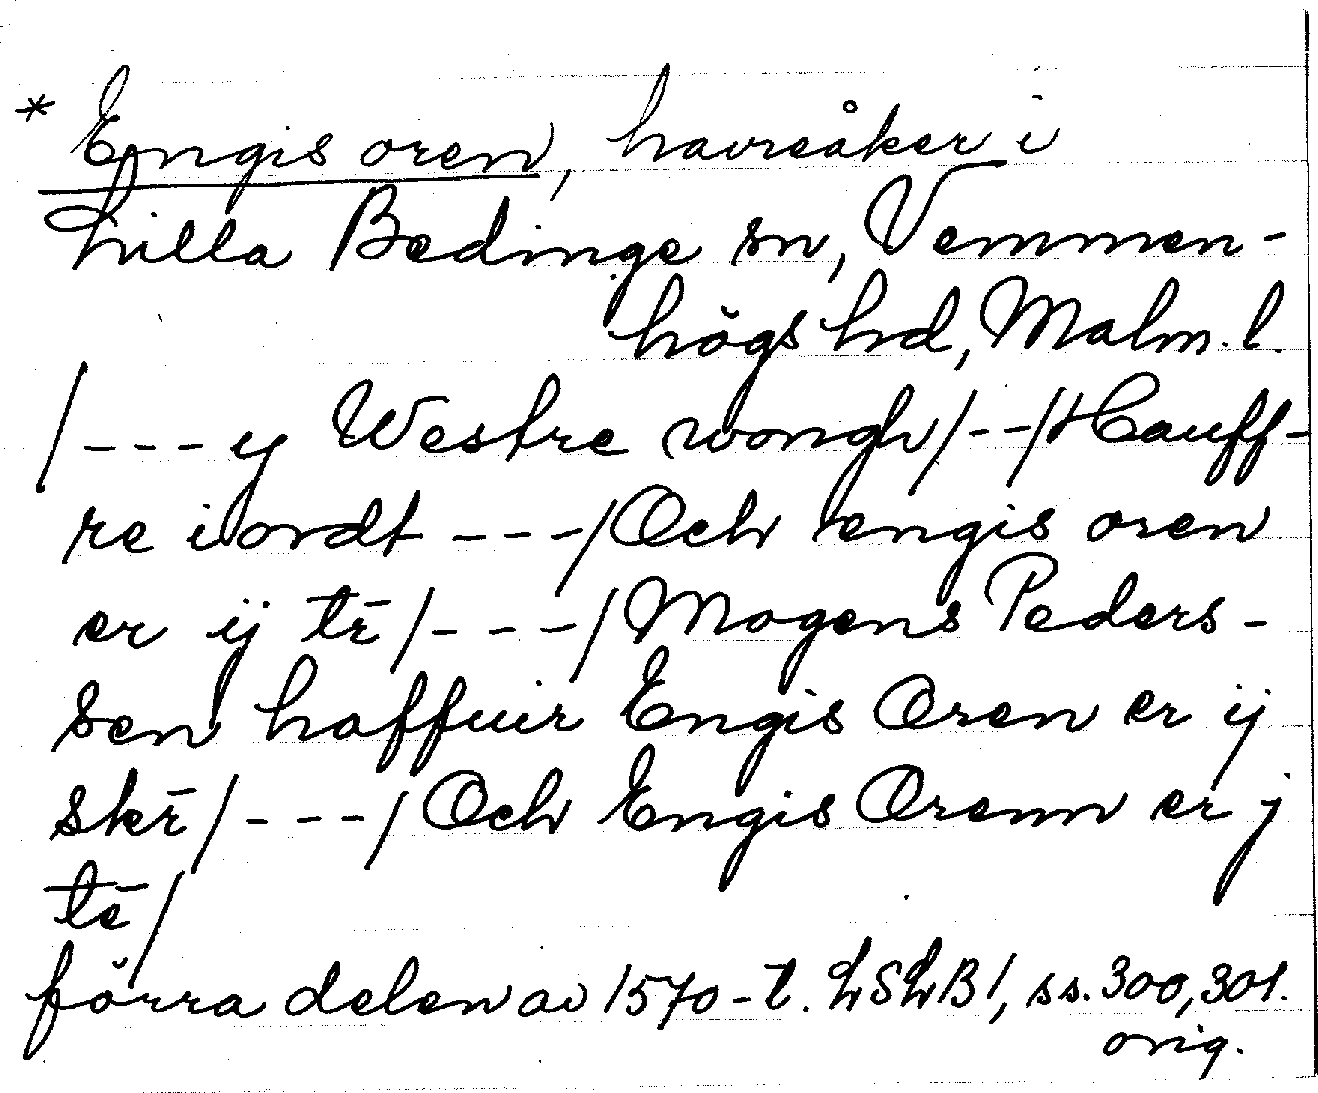 * Engis oren, havreåker i
Lilla Bedinge sn, Vemmen-
högs hd, Malm. l.
/---y Westre wongh/--/Hauff-
re iordt ---/Och engis oren
er ij tē/---/Mogens Peders-
sen haffuir Engis Oren er ij
skē/---/Och Engis Orenn er j
tē/
förra delen av 1570-t. LSLB1, ss. 300, 301.
orig.